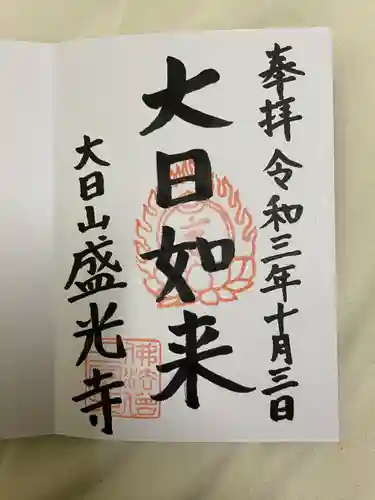 奉拝 令和三年十月三日
大日如来
大日山盛光寺
佛法僧